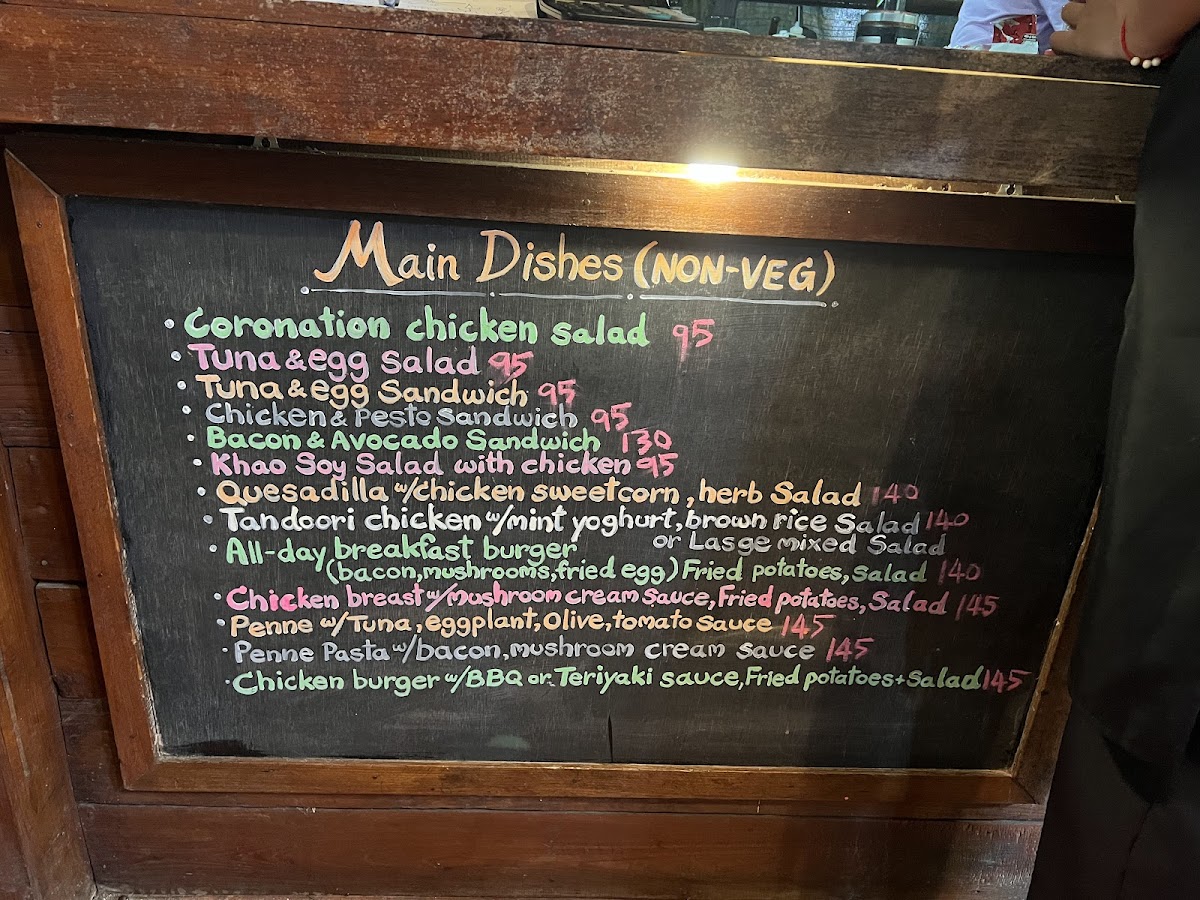 Main Dishes (NON-VEG)
• Coronation chicken salad 95
• Tuna & egg Salad 95
• Tuna & egg Sandwich 95
• Chicken & Pesto Sandwich 95
• Bacon & Avocado Sandwich 130
• Khao Soy Salad with chicken 95
• Quesadilla w/chicken sweetcorn, herb Salad 140
• Tandoori chicken w/mint yoghurt, brown rice Salad 140
or Lasge mixed Salad
• All-day breakfast burger
(bacon, mushrooms, fried egg) Fried potatoes, salad 140
• Chicken breast w/mushroom cream sauce, Fried potatoes, Salad 145
• Penne w/Tuna, eggplant, Olive, tomato sauce 145
• Penne Pasta w/bacon, mushroom cream sauce 145
• Chicken burger w/BBQ or Teriyaki sauce, Fried potatoes + Salad 145